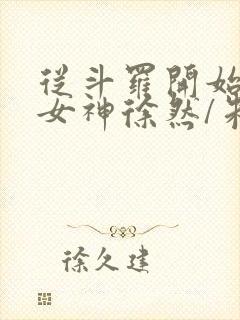 從斗羅開始
女神徐然/朱
徐久建